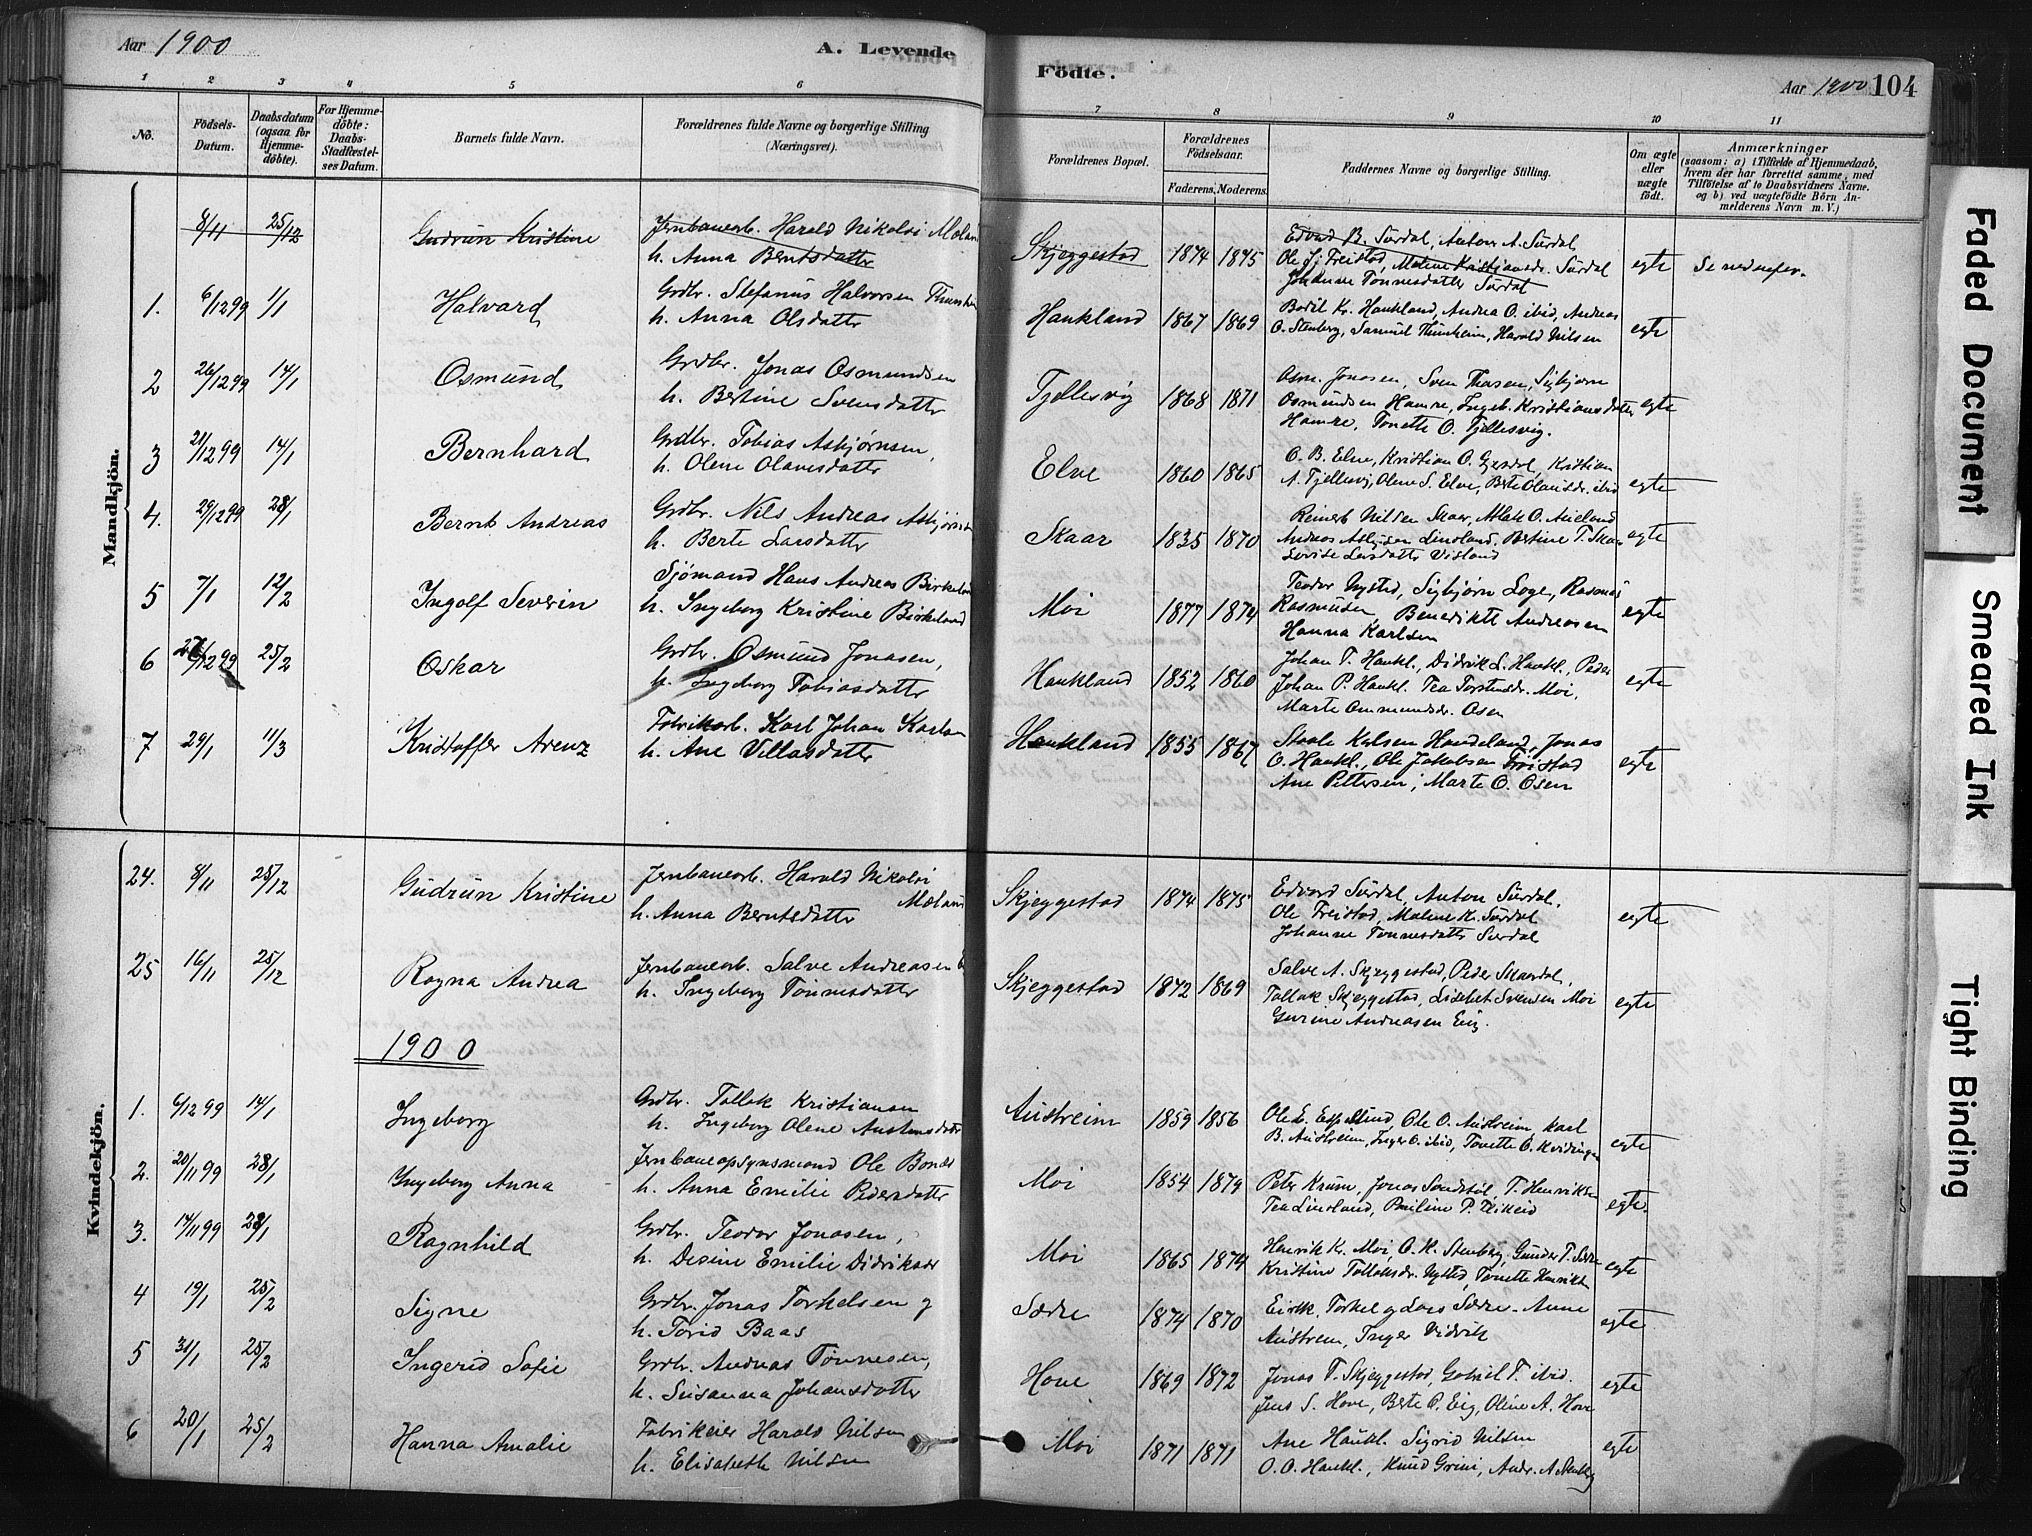 Aar 1900
A. Levende
Födte.
Aar 1900
104
1 2 3 4 5 6 7 8 9 10 11
No.
Födsels-Datum.
Daabsdatum (ogsaa for Hjemmedöbte).
For Hjemmedöbte: Daabs-Stadfæstelses Datum.
Barnets fulde Navn.
Forældrenes fulde Navne og borgerlige Stilling (Næringsvei).
Forældrenes Bopæl.
Forældrenes Födselsaar.
Faderens. Moderens.
Faddernes Navne og borgerlige Stilling.
Om ægte eller uægte födt.
Anmærkninger
(saasom: a) i Tilfælde af Hjemmedaab, hvem der har forrettet samme, med Tilföielse af to Daabsvidners Navne, og b) ved uægtefödte Börn Anmelderens Navn m. V.)
Mandkjön.
8/11 25/12 Gudrun Kristine
Jernbanearb. Harald Nikolai Mæland
h. Anna Berntsdatter
Skjeggestad 1874 1875
Edvard B. Surdal, Anton A. Surdal
Ole J. Freistad, Malene Kristiansdr. Surdal
Johanne Tønnesdatter Surdal
egte
Se nedenfor.
1. 6/12 99 1/1 Halvard
Grdbr. Stefanus Halvorsen
h. Anna Olsdatter
Haukland 1867 1869
Bodil K. Haukland, Andrea O. ibid, Andreas
O. Stenberg, Samuel Thunheim, Harald Nilsen
egte
2 26/12 99 14/1 Osmund
Grdbr. Jonas Osmundsen
h. Bertine Svensdatter
Tjellesvig 1868 1871
Osm. Jonasen, Sven Thasen, Sigbjørn
Osmundsen Hamre, Ingeb. Kristiansdatter
Hamre, Tonette O. Tjellesvig.
egte
3 21/12 99 14/1 Bernhard
Grdbr. Tobias Asbjørnsen,
h. Olene Olausdatter
Elve 1860 1865
O. B. Elve, Kristian O. Gysdal, Kristian
A. Tjellesvig, Olene S. Elve, Berte Olausdr. ibid
egte
4. 29/12 99 28/1 Bernt Andreas
Grdbr. Nils Andreas Asbjørnsen
h. Berte Larsdatter
Skaar 1835 1870
Reinert Nilsen Skaar, Aslak O. Aueland
Andreas Lindland, Bertine T. Skaar
Lovise Larsdatter Visland
egte
5 7/1 12/2 Ingolf Severin
Sjømand Hans Andreas Birkeland
h. Ingeborg Kristine Birkeland
Moi 1877 1874
Teodor Nysted, Sigbjørn Loge, Rasmus
Rasmusen, Benedikte Andreasen
Hanna Karlsen
egte
6 27/12 99 25/2 Oskar
Grdbr. Osmund Jonasen,
h. Ingeborg Tobiasdatter
Haukland 1852 1860
Johan T. Haukl., Didrik L. Haukl., Peder
Johan P. Haukl. Tea Torstensdr. Moi,
Marte Ommundsdr. Osen
egte
7 29/1 11/3 Kristoffer Arenz
Fabrikarb. Karl Johan Karlsen
h. Ane Villasdatter
Haukland 1855 1867
Staale Karlsen Handeland, Jonas
O. Haukl., Ole Jakobsen Freistad
Ane Pettersen, Marte O. Osen
egte
Kvindekjön.
24. 8/11 25/12 Gudrun Kristine
Jernbanearb. Harald Nikolai Mæland
h. Anna Berntsdatter
Skjeggestad 1874 1875
Edvard Surdal, Anton Surdal.
Ole Freistad, Malene K. Surdal
Johanne Tønnesdatter Surdal
egte
25 16/11 25/12 Ragna Andrea
Jernbanearb. Salve Andreasen
h. Ingeborg Tønnesdatter
Skjeggestad 1872 1869
Salve A. Skjeggestad, Peder Skaardal,
Tallak Skjeggestad, Lisebet Svensen Moi
Gurine Andreasen Eig.
egte
1900
1. 6/12 99 14/1 Ingeborg
Grdbr. Tallak Kristiansen
h. Ingeborg Olene Austensdatter
Austreim 1859 1856
Ole E. Espelund, Ole O. Austreim Karl
B. Austreim, Inger O. ibid, Tonette O. Kvidingen
egte
2. 20/11 99 28/1 Ingeborg Anna
Jernbaneopsynsmand Ole Bonde
h. Anna Emilie Pedersdatter
Moi 1854 1879
Peter Krum, Jonas Sandstøl, T. Henriksen
Tea Lindland, Emiline P. Eikeid
egte.
3. 14/11 99 28/1 Ragnhild
Grdbr. Teodor Jonasen,
h. Desine Emilie Didriksdr
Moi 1865 1874
Henrik K. Moi, O. K. Stenberg, Gunder T. Sædre
Kristine Tallaksdr. Nysted, Tonette Henriks
egte
4 19/1 25/2 Signe
Grdbr. Jonas Torkelsen og
h. Torid Baas
Sædre 1874 1870
Eirik, Torkel og Lars Sædre. Anne
Austreim, Inger Vidrik
egte
5 31/1 25/2 Ingerid Sofie
Grdbr. Andreas Tønnesen,
h. Susanna Johansdatter
Hove 1869 1872
Jonas T. Skjeggestad, Gabriel T. ibid.
Jens S. Hove, Berte O. Eig, Oline A. Hove
egte
6 20/1 25/2 Hanna Amalie
Fabrikeier Harald Nilsen
h. Elisabeth Nilsen
Moi 1871 1871
Ane Haukl. Sigrid Nilsen
O. O. Haukl., Knud Grini, Andr. A. Stenberg
egte
Faded Document
Smeared Ink
Tight Binding